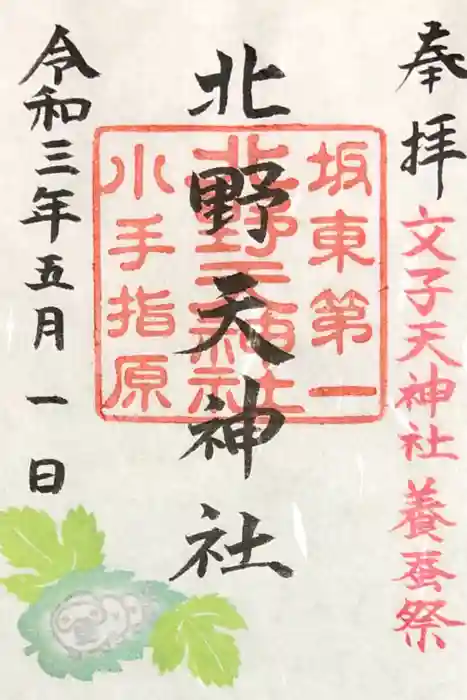 奉拝
文子天神社 養蚕祭
北野天神社
坂東第一
北野天神社
小手指原
令和三年五月一日